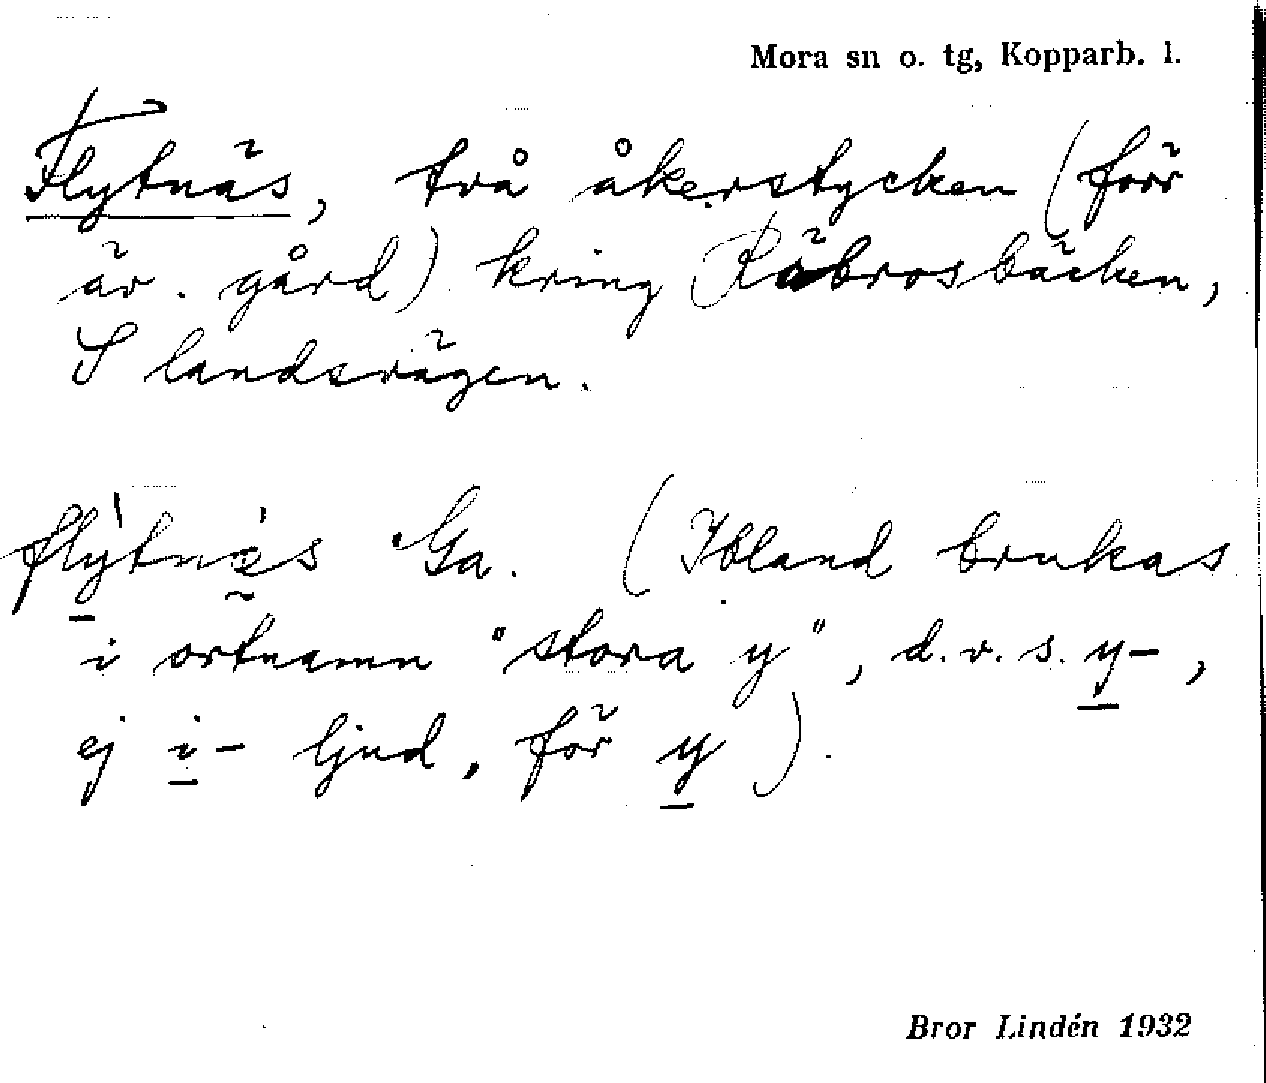 Mora sn o. tg, Kopparb. l.
Flytnäs, två åkerstycken (förr
äv. gård) kring Räbrosbäcken,
S landsvägen.
flỳtnä́s Ga. (Ibland brukas
i ortnamn "stora y", d.v.s. y-,
ej i- ljud, för y).
Bror Lindén 1932